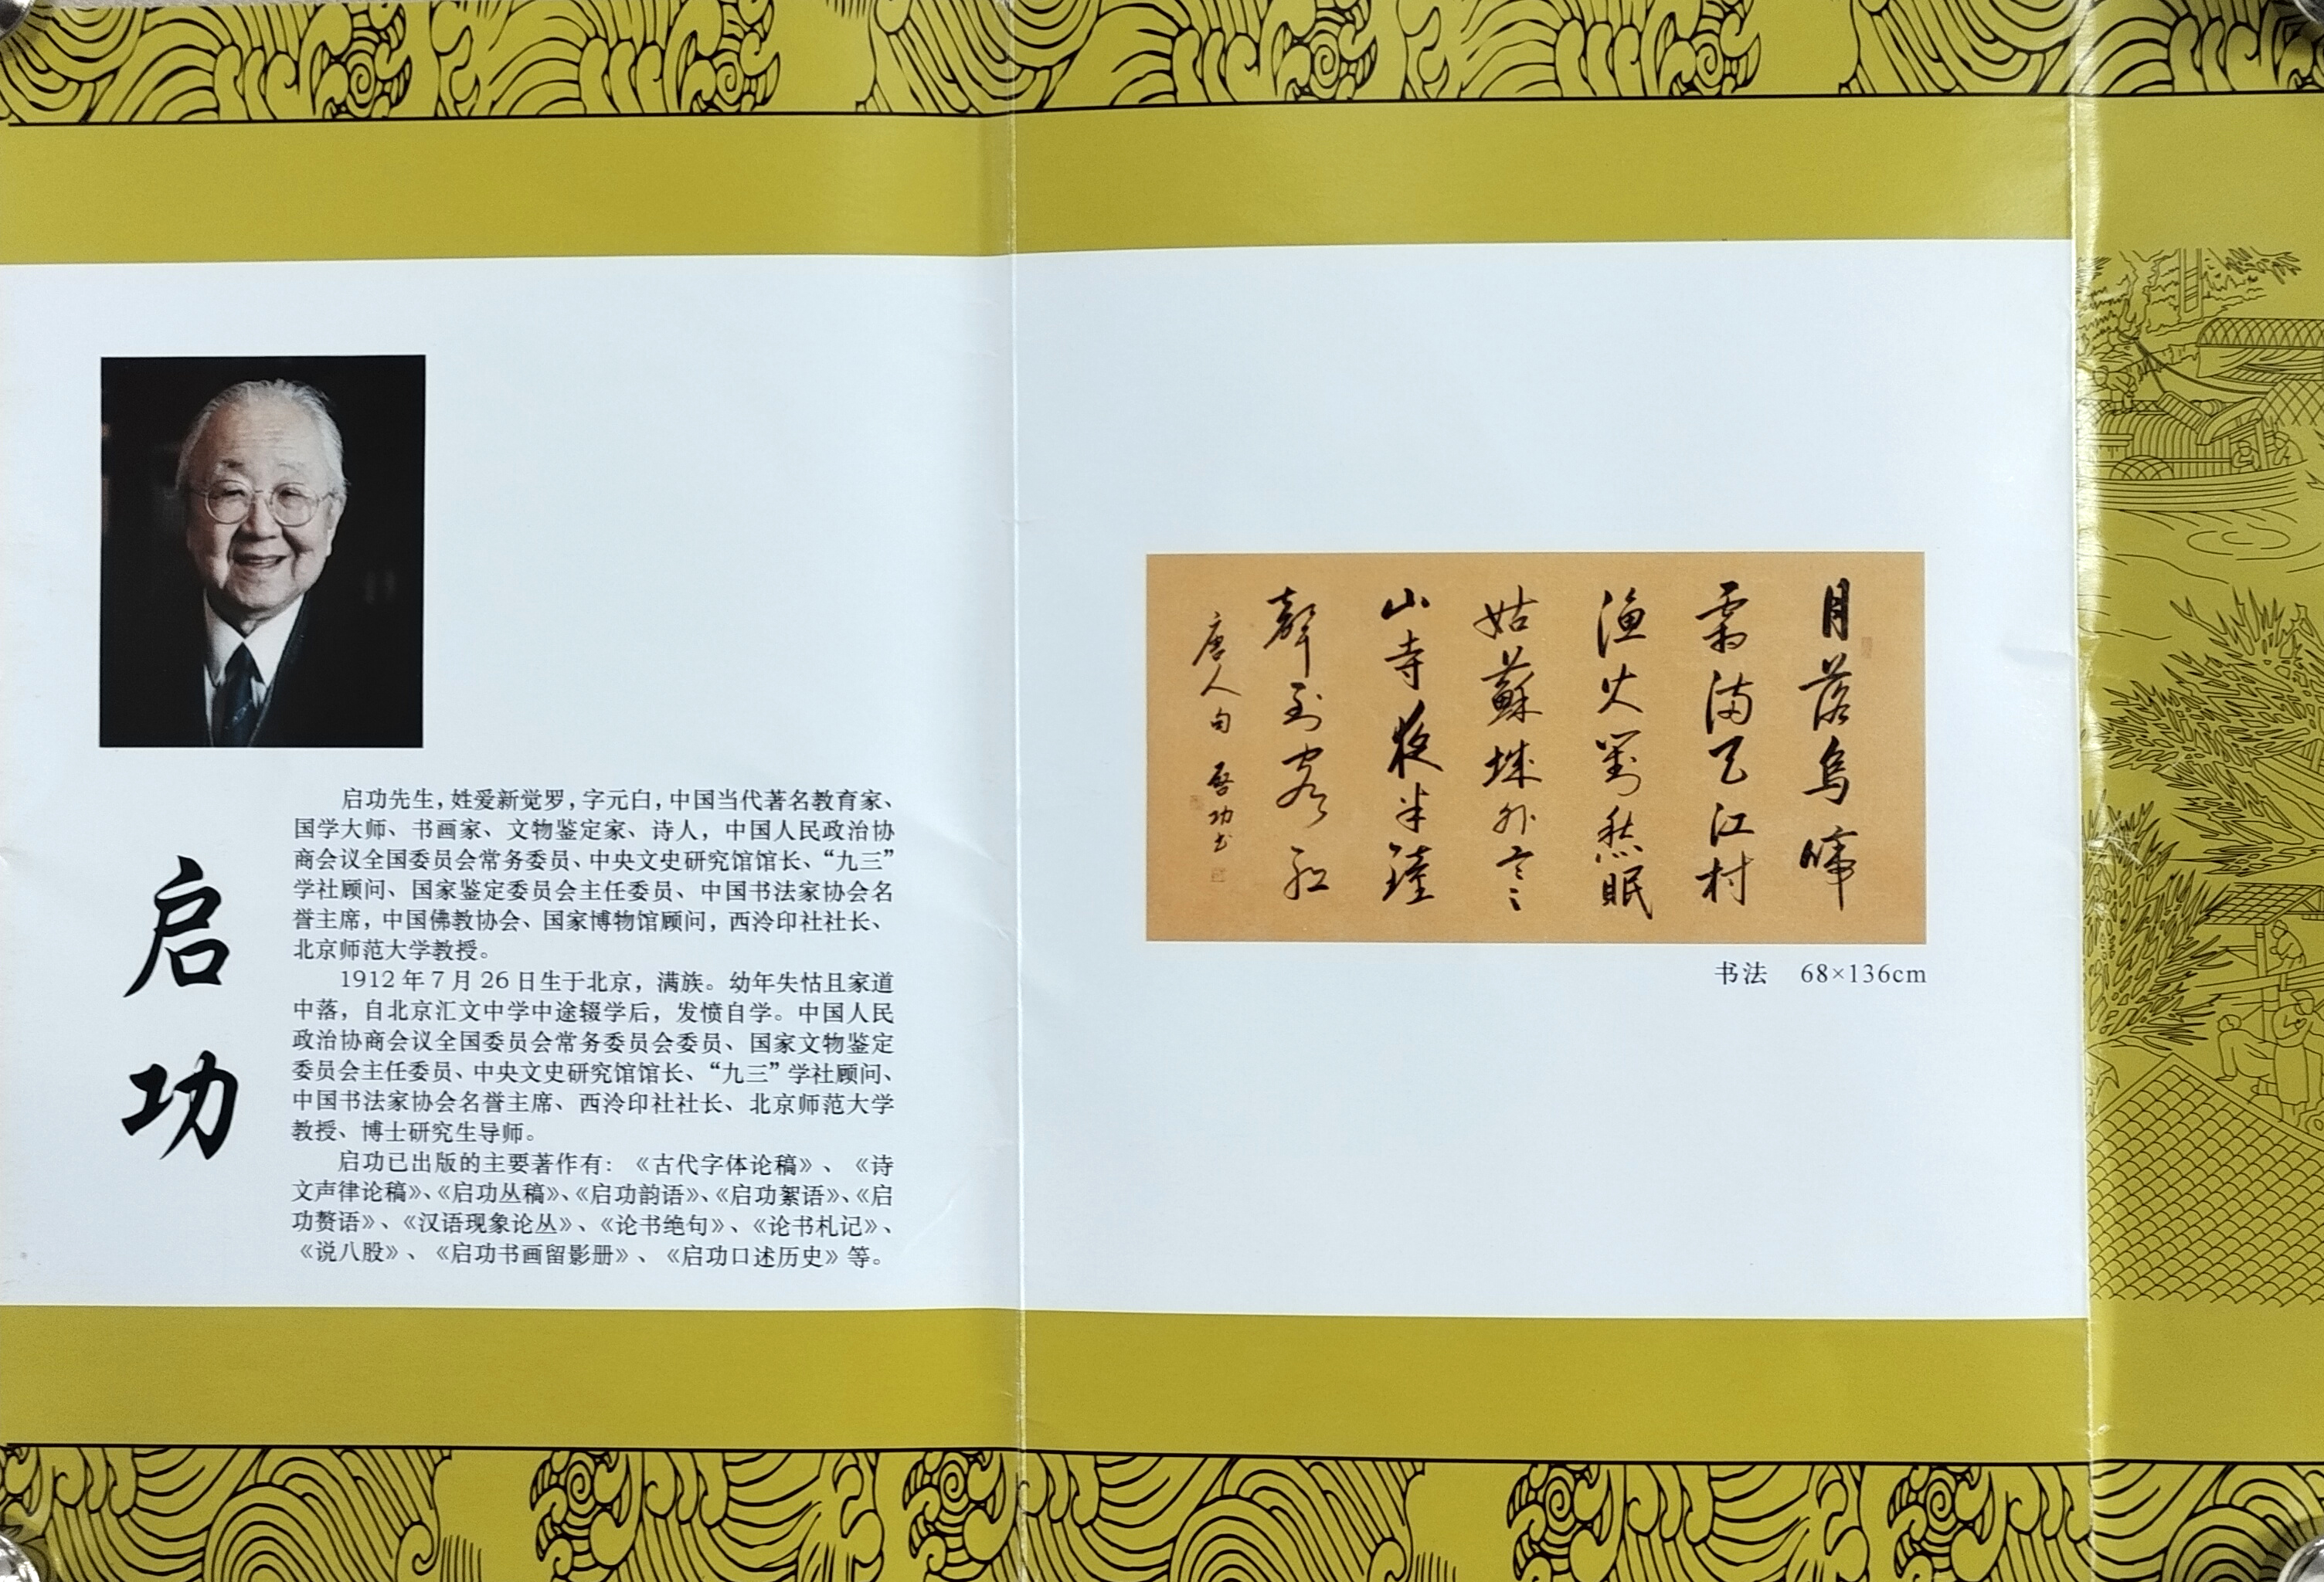 启功
启功先生，姓爱新觉罗，字元白，中国当代著名教育家、
国学大师、书画家、文物鉴定家、诗人，中国人民政治协
商会议全国委员会常务委员、中央文史研究馆馆长、“九三”
学社顾问、国家鉴定委员会主任委员、中国书法家协会名
誉主席，中国佛教协会、国家博物馆顾问，西泠印社社长、
北京师范大学教授。
1912年7月26日生于北京，满族。幼年失怙且家道
中落，自北京汇文中学中途辍学后，发愤自学。中国人民
政治协商会议全国委员会常务委员会委员、国家文物鉴定
委员会主任委员、中央文史研究馆馆长、“九三”学社顾问、
中国书法家协会名誉主席、西泠印社社长、北京师范大学
教授、博士研究生导师。
启功已出版的主要著作有：《古代字体论稿》、《诗
文声律论稿》、《启功丛稿》、《启功韵语》、《启功絮语》、《启
功赘语》、《汉语现象论丛》、《论书绝句》、《论书札记》、
《说八股》、《启功书画留影册》、《启功口述历史》等。
月落乌啼
霜满天江村
渔火对愁眠
姑苏城外寒二
山寺夜半钟
声到客船
唐人句 启功书
书法 68×136cm